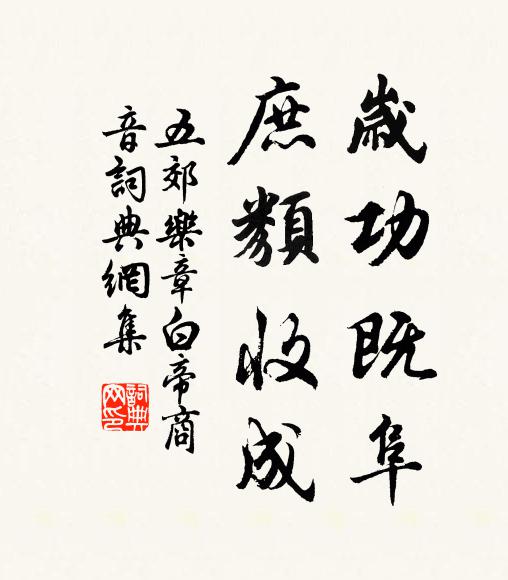 歲功既阜
庶類收成
五郊樂章白帝商
音詞典網集
詞典網印